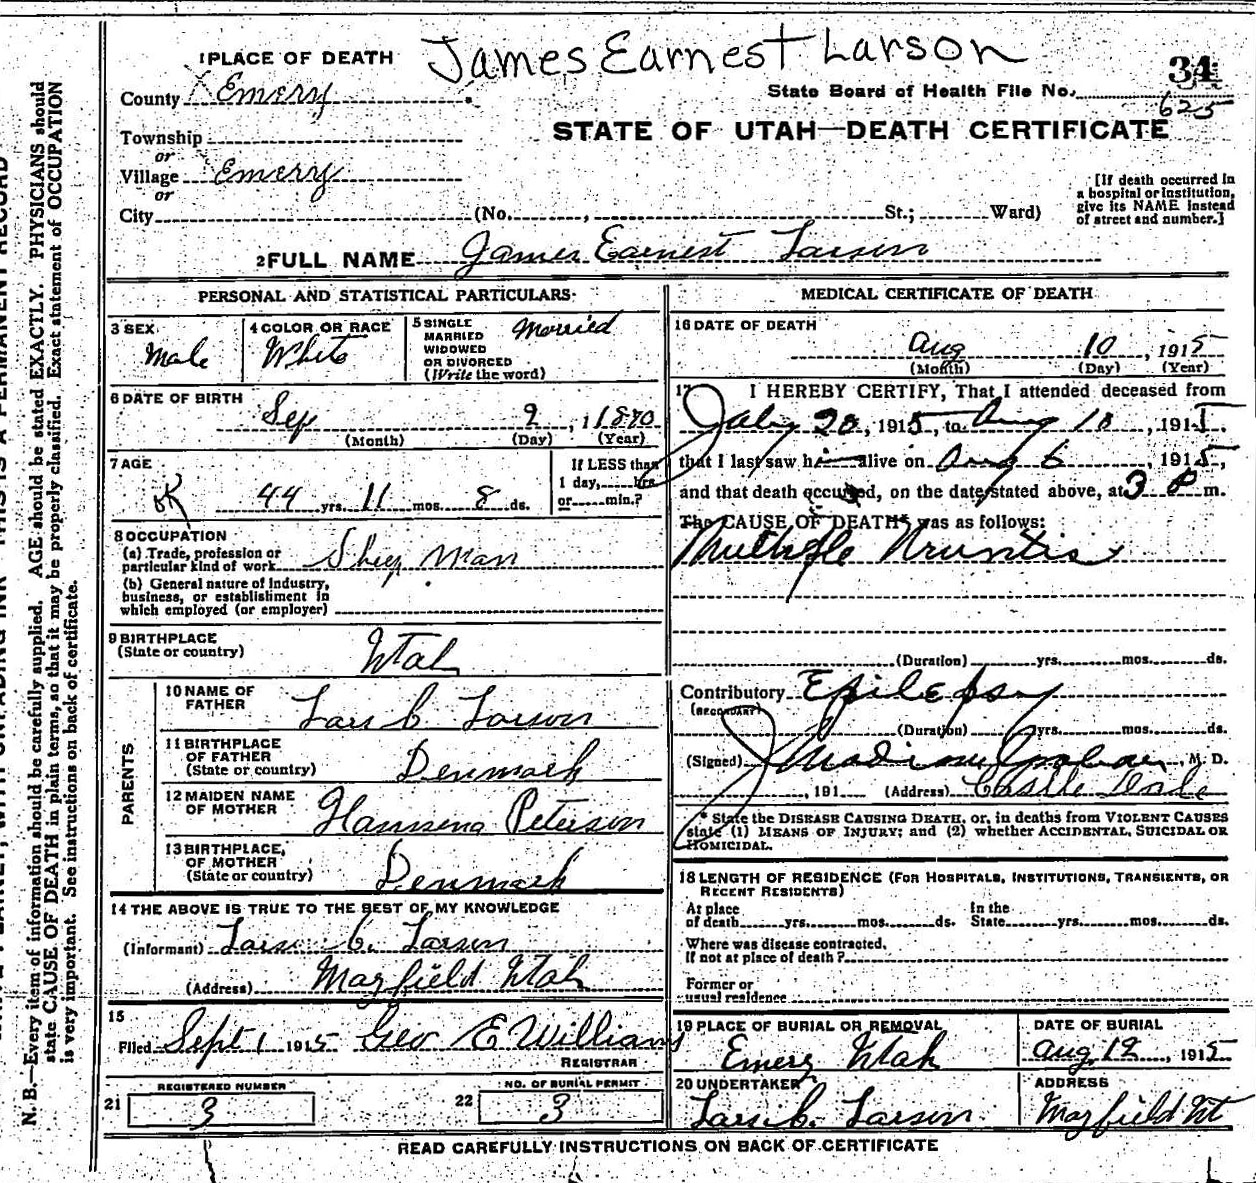 James Earnest Larson
1 PLACE OF DEATH
34
County Emery
State Board of Health File No.
625
STATE OF UTAH—DEATH CERTIFICATE
Township
or
Village Emery
or
City (No. , St.; Ward)
[If death occurred in
a hospital or institution,
give its NAME instead
of street and number.]
2 FULL NAME James Earnest Larson
PERSONAL AND STATISTICAL PARTICULARS
3 SEX
Male
4 COLOR OR RACE
White
5 SINGLE
MARRIED
WIDOWED
OR DIVORCED
(Write the word)
Married
6 DATE OF BIRTH
Sep 2, 1870
(Month) (Day) (Year)
7 AGE
OK 44 yrs. 11 mos. 8 ds.
If LESS than
1 day, hrs.
or min.?
8 OCCUPATION
(a) Trade, profession or
particular kind of work Sheep Man
(b) General nature of industry,
business, or establishment in
which employed (or employer)
9 BIRTHPLACE
(State or country)
Utah
PARENTS
10 NAME OF
FATHER
Lars C Larson
11 BIRTHPLACE
OF FATHER
(State or country)
Denmark
12 MAIDEN NAME
OF MOTHER
Peterson
13 BIRTHPLACE
OF MOTHER
(State or country)
Denmark
14 THE ABOVE IS TRUE TO THE BEST OF MY KNOWLEDGE
(Informant) Lars C. Larson
(Address) Mayfield Utah
15
Filed Sept 1 1915 Geo E Williams
REGISTRAR
REGISTERED NUMBER
21 3
NO. OF BURIAL PERMIT
22 3
MEDICAL CERTIFICATE OF DEATH
16 DATE OF DEATH
Aug 10, 1915
(Month) (Day) (Year)
17 I HEREBY CERTIFY, That I attended deceased from
July 20, 1915, to Aug 10, 1915,
that I last saw h alive on Aug 6, 1915,
and that death occurred, on the date stated above, at 3 P m.
The CAUSE OF DEATH* was as follows:
Multiple
(Duration) yrs. mos. ds.
Contributory Epilepsy
(SECONDARY)
(Duration) yrs. mos. ds.
(Signed) , M. D.
, 191 (Address) Castle Dale
* State the DISEASE CAUSING DEATH, or, in deaths from VIOLENT CAUSES
state (1) MEANS OF INJURY; and (2) whether ACCIDENTAL, SUICIDAL OR
HOMICIDAL.
18 LENGTH OF RESIDENCE (FOR HOSPITALS, INSTITUTIONS, TRANSIENTS, OR
RECENT RESIDENTS)
At place
of death yrs. mos. ds.
In the
State yrs. mos. ds.
Where was disease contracted,
If not at place of death?
Former or
usual residence
19 PLACE OF BURIAL OR REMOVAL
Emery Utah
DATE OF BURIAL
Aug 12, 1915
20 UNDERTAKER
Lars C. Larson
ADDRESS
Mayfield Ut
READ CAREFULLY INSTRUCTIONS ON BACK OF CERTIFICATE
N. B.—Every item of information should be carefully supplied. AGE should be stated EXACTLY. PHYSICIANS should
state CAUSE OF DEATH in plain terms, so that it may be properly classified. Exact statement of OCCUPATION
is very important. See instructions on back of certificate.